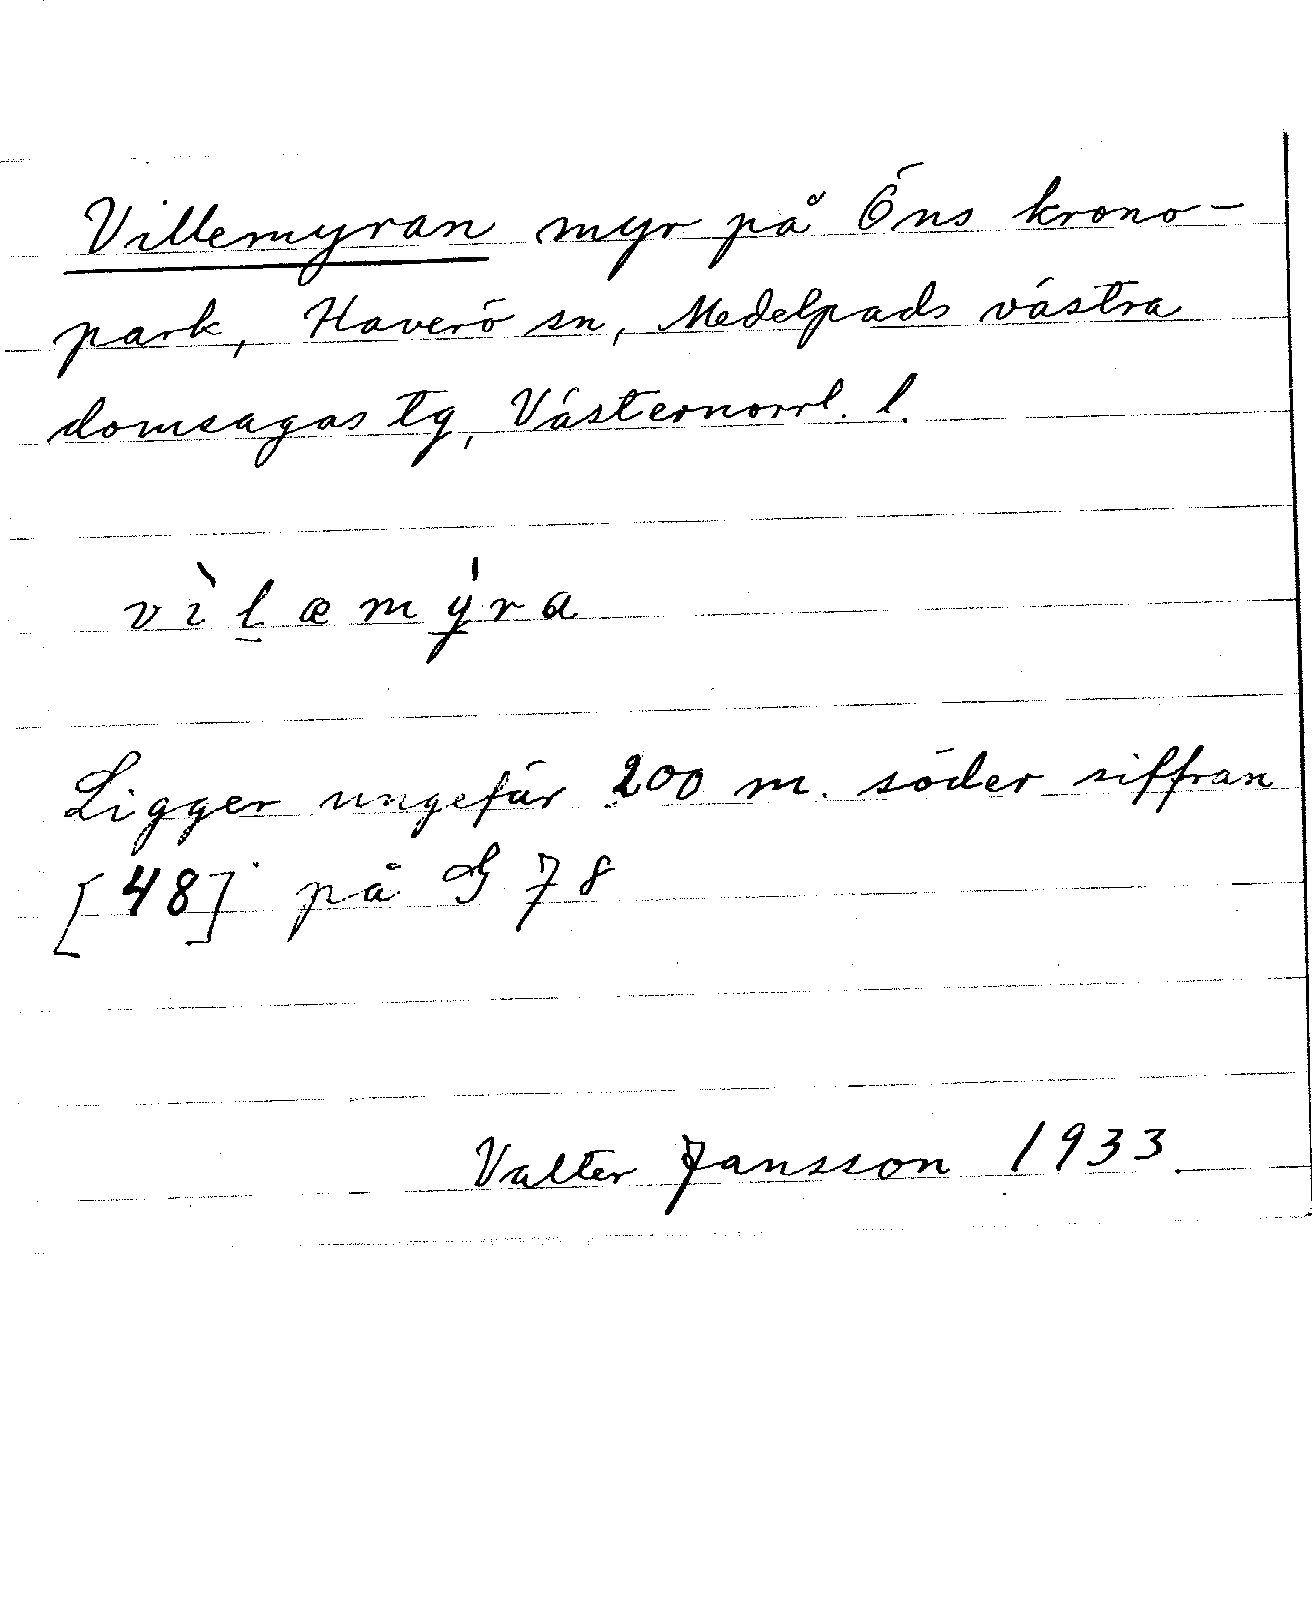 Villemyran myr på Öns krono-
park, Haverö sn, Medelpads västra
domsagas tg, Västernorrl. l.
vìl̲æmý̲ra
Ligger ungefär 200 m. söder siffran
[48] på G 78
Valter Jansson 1933